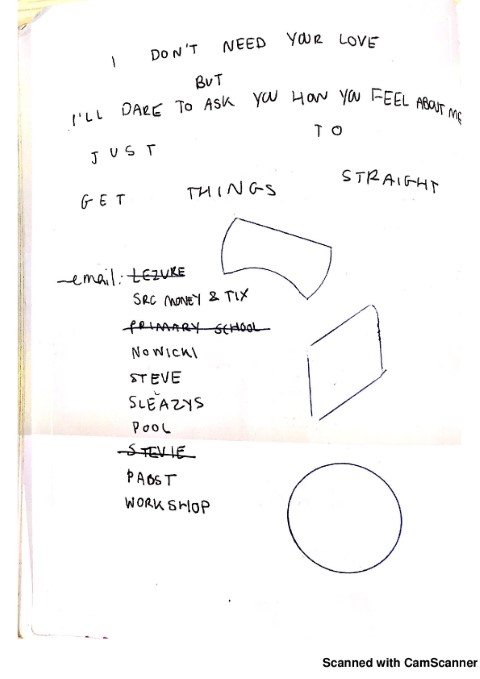 I DON'T NEED YOUR LOVE
BUT
I'LL DARE TO ASK YOU HOW YOU FEEL ABOUT ME
TO
JUST
STRAIGHT
GET THINGS
email: LEZURE
SRC MONEY & TIX
PRIMARY SCHOOL
NOWICKI
STEVE
SLEAZYS
POOL
STEVIE
PABST
WORKSHOP
Scanned with CamScanner